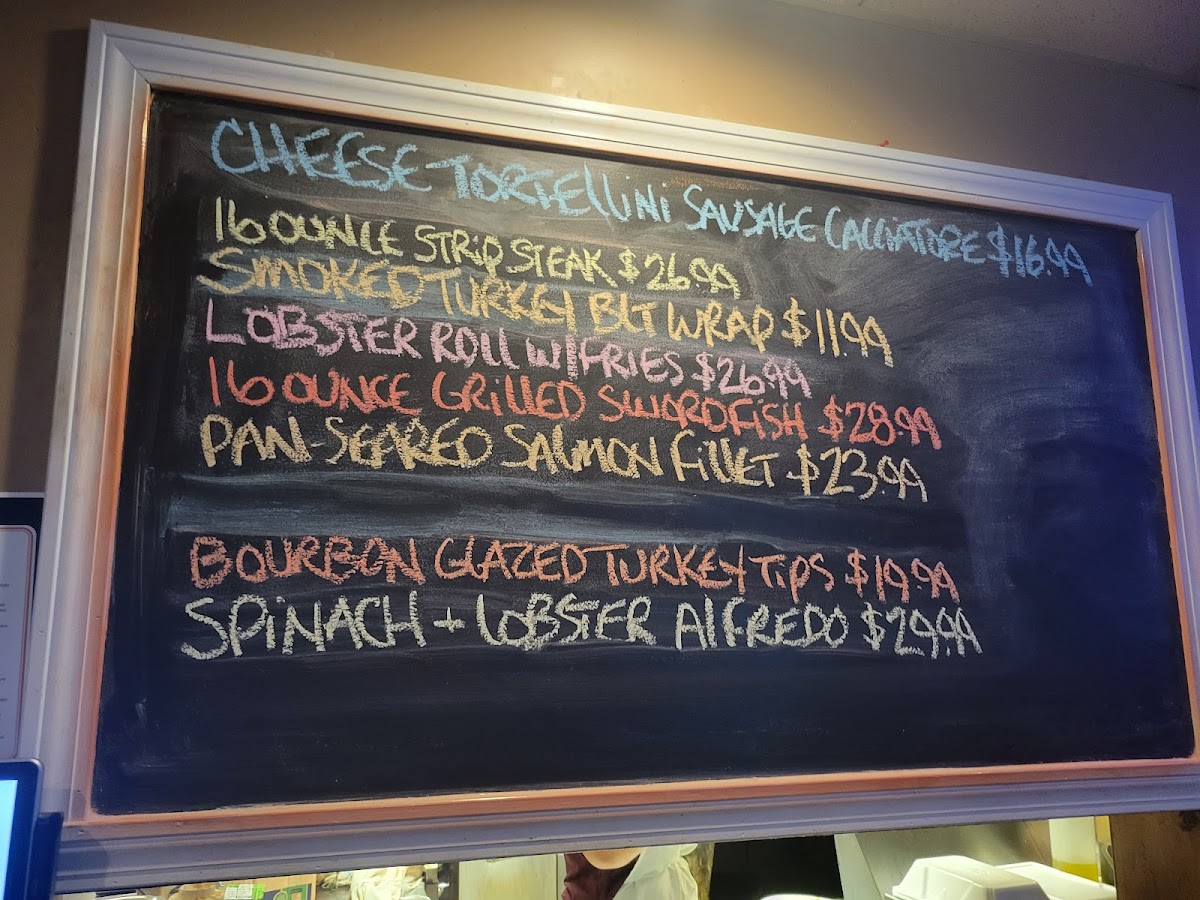 CHEESE TORTELLINI SAUSAGE CACCIATORE $16.99
16 OUNCE STRIP STEAK $26.99
SMOKED TURKEY BLT WRAP $11.99
LOBSTER ROLL W/FRIES $26.99
16 OUNCE GRILLED SWORDFISH $28.99
PAN-SEARED SALMON FILLET $23.99
BOURBON GLAZED TURKEY TIPS $19.99
SPINACH + LOBSTER ALFREDO $29.99